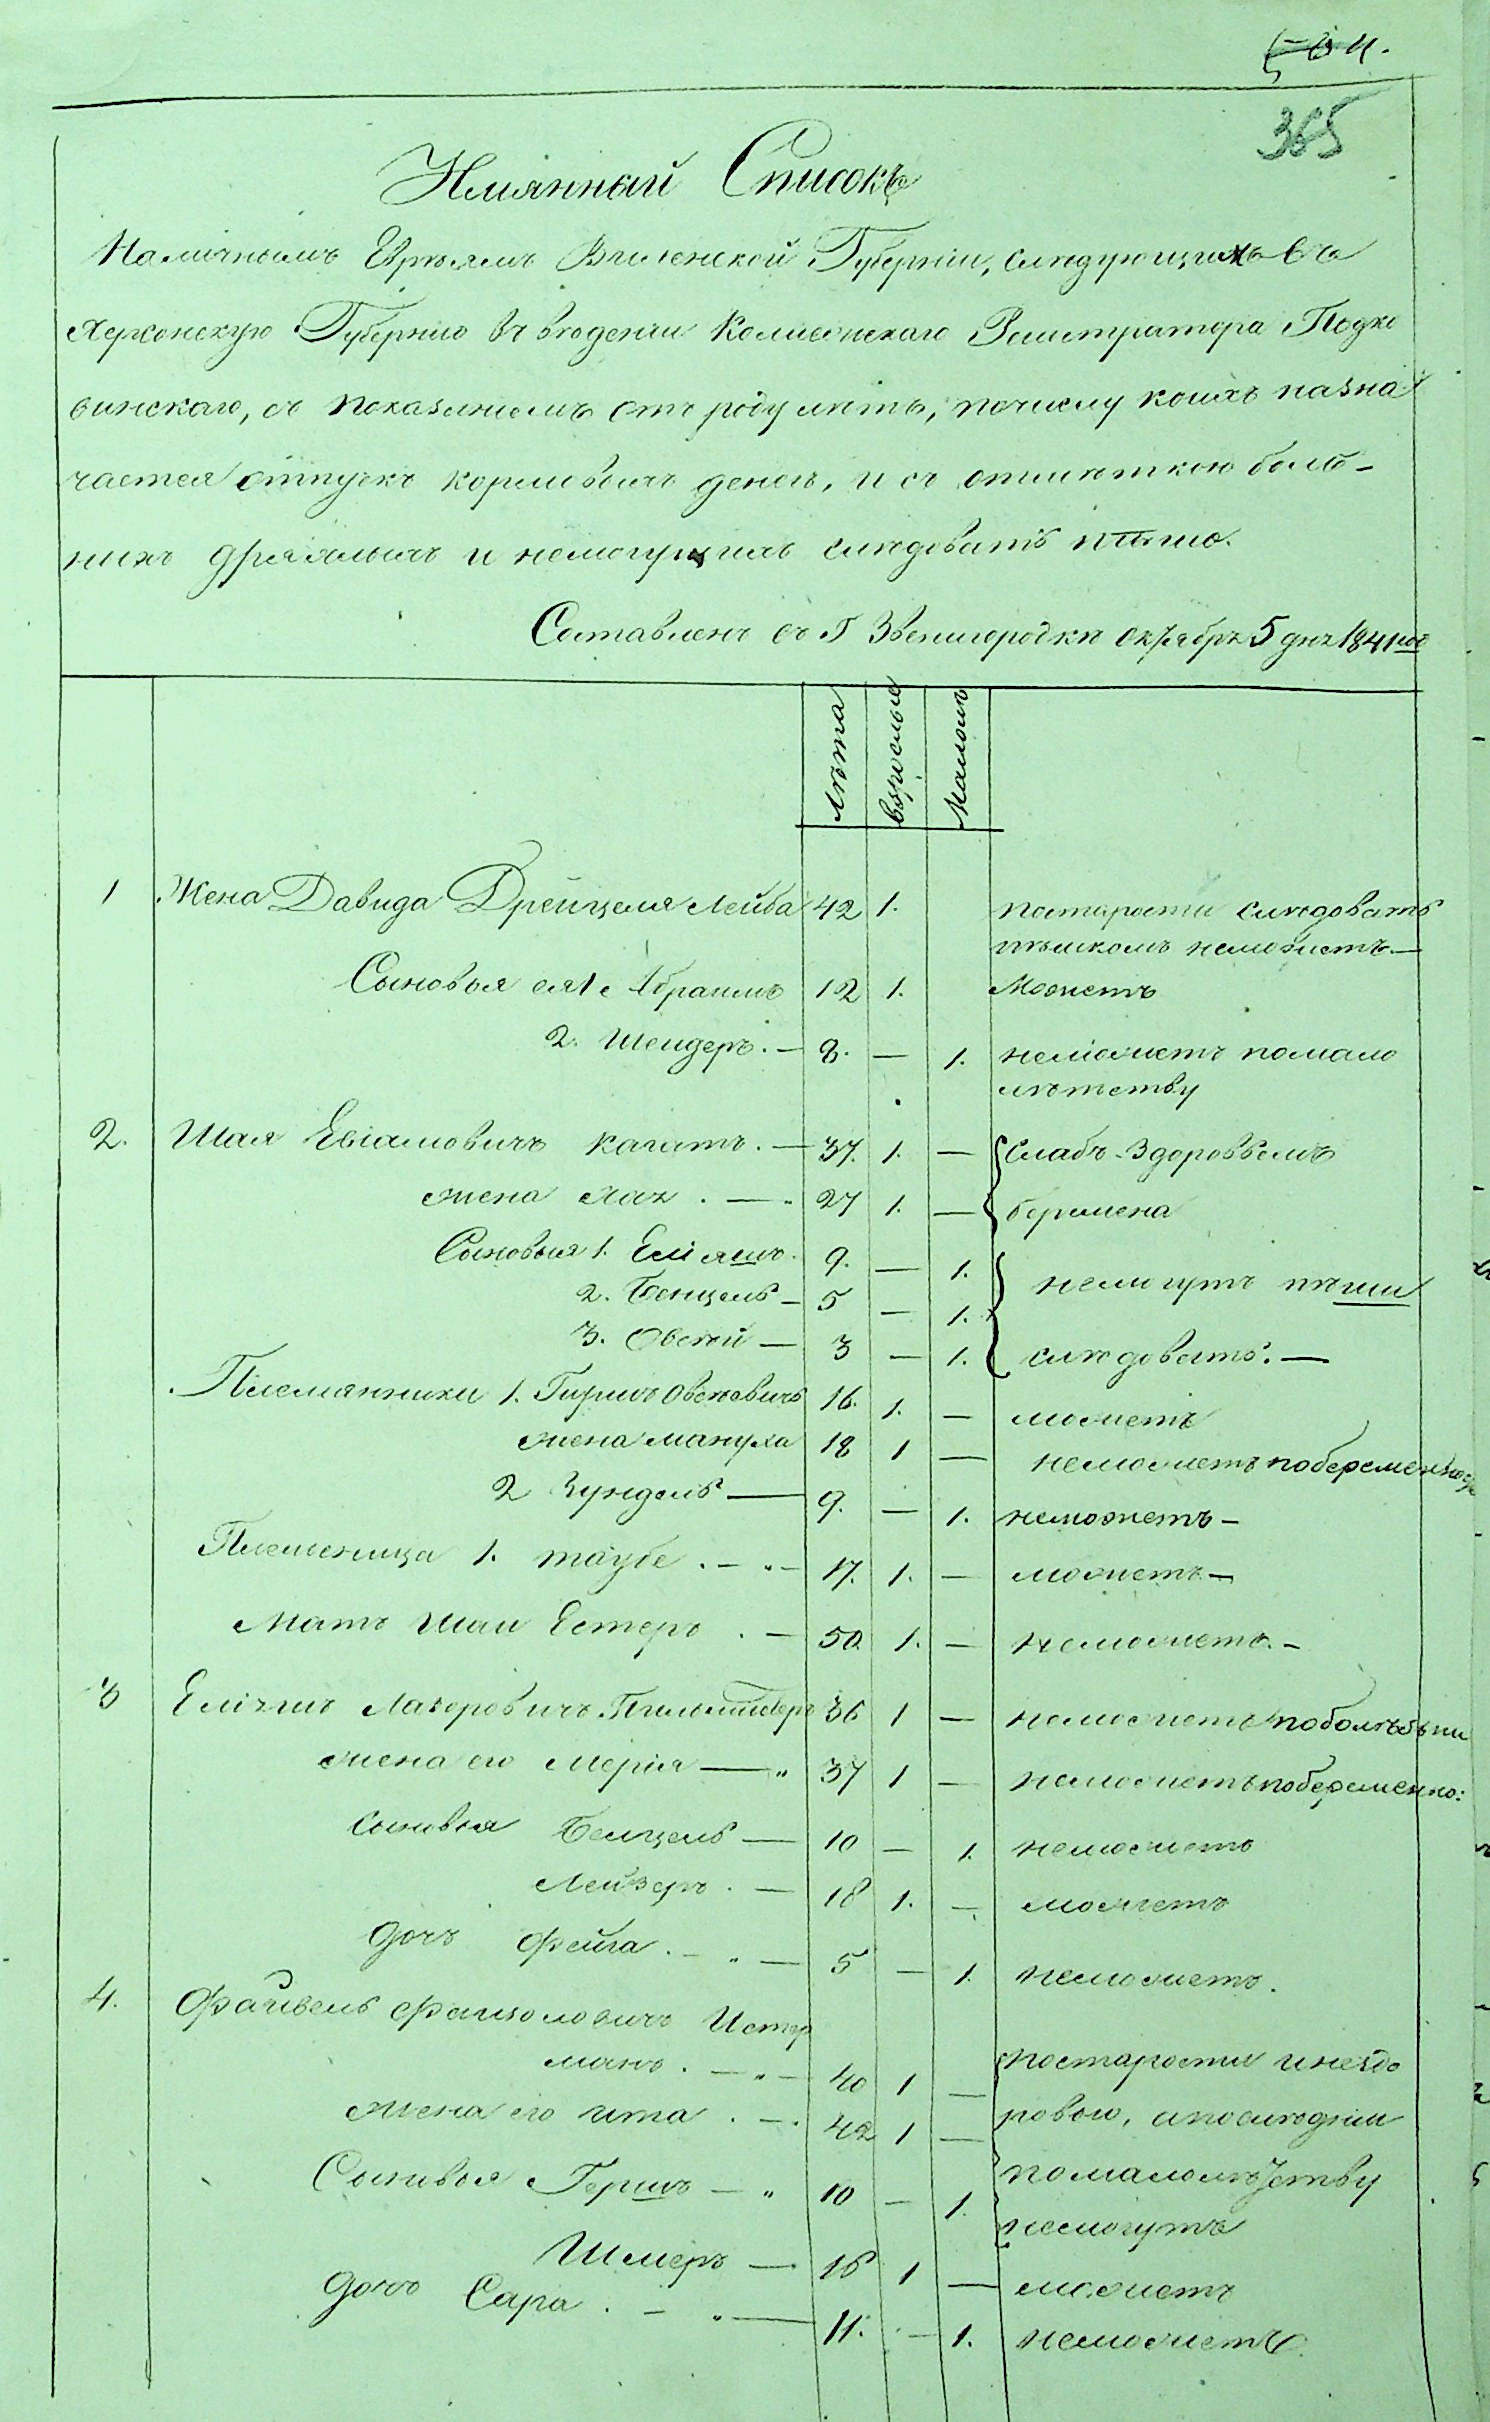 504.
365
Имянный Списокъ
Наличнымъ Евреямъ Виленской Губерніи, слѣдующихъ въ
Херсонскую Губернію въ вѣденіи Колежскаго Регистратора Подко
винскаго, съ показаніемъ отъ роду лѣтъ, почислу коихъ назна
чается отпускъ кормовыхъ денегъ, и съ отмѣткою боль-
ныхъ дряхлыхъ и немогущихъ слѣдовать пѣшо.
Составленъ въ Г Звенигородкѣ Октября 5 дня 1841 год
Лѣта взрослые Малолѣ
1 Жена Давида Дрейцеля Лейба 42 1. постарости слѣдовать
пѣшкомъ неможетъ —
Сыновья ея 1. Абрамъ 12 1. Можетъ
2. Шендеръ. — 8. — 1. неможетъ помало
лѣтству
2. Шая Евіамовичъ Кагатъ. — 37. 1. — слабъ здоровьемъ
жена Хая . — . 27 1. — беремена
Сыновья 1. Еліяшъ. 9. — 1. немогутъ пѣши
2. Бенцель — 5 — 1.
3. Овсей — 3 — 1. слѣдовать. —
Племянники 1. Гиршъ Овсеевичъ 16. 1. — можетъ
жена Мануха 18 1 — неможетъ побеременнос
2 Зундель — 9. — 1. неможетъ —
Племеница 1. таубе . — . — 17. 1. — можетъ —
Мать Шаи Естеръ . — 50. 1. — неможетъ. —
3 Еліяшъ Лазеровичъ 36 1 — неможетъ поболѣзни
жена его Мерія — „ 37 1 — неможетъ побеременно:
Сыновья Бенцель — 10 — 1. неможетъ
Лейзеръ . — 18 1. — можетъ
Дочь Фейга . — „ — 5 — 1. неможетъ.
4. Файвель Файвеловичъ Истер
манъ . — „ — 40 1 — постарости инездо
жена его Ита . — . 42 1 — ровью, апослѣдніи
Сыновья Гершъ — „ 10 — 1. помалолѣтству
немогутъ
Шмеръ — 16 1 — можетъ
Дочь Сара . — „ — 11. — 1. неможетъ